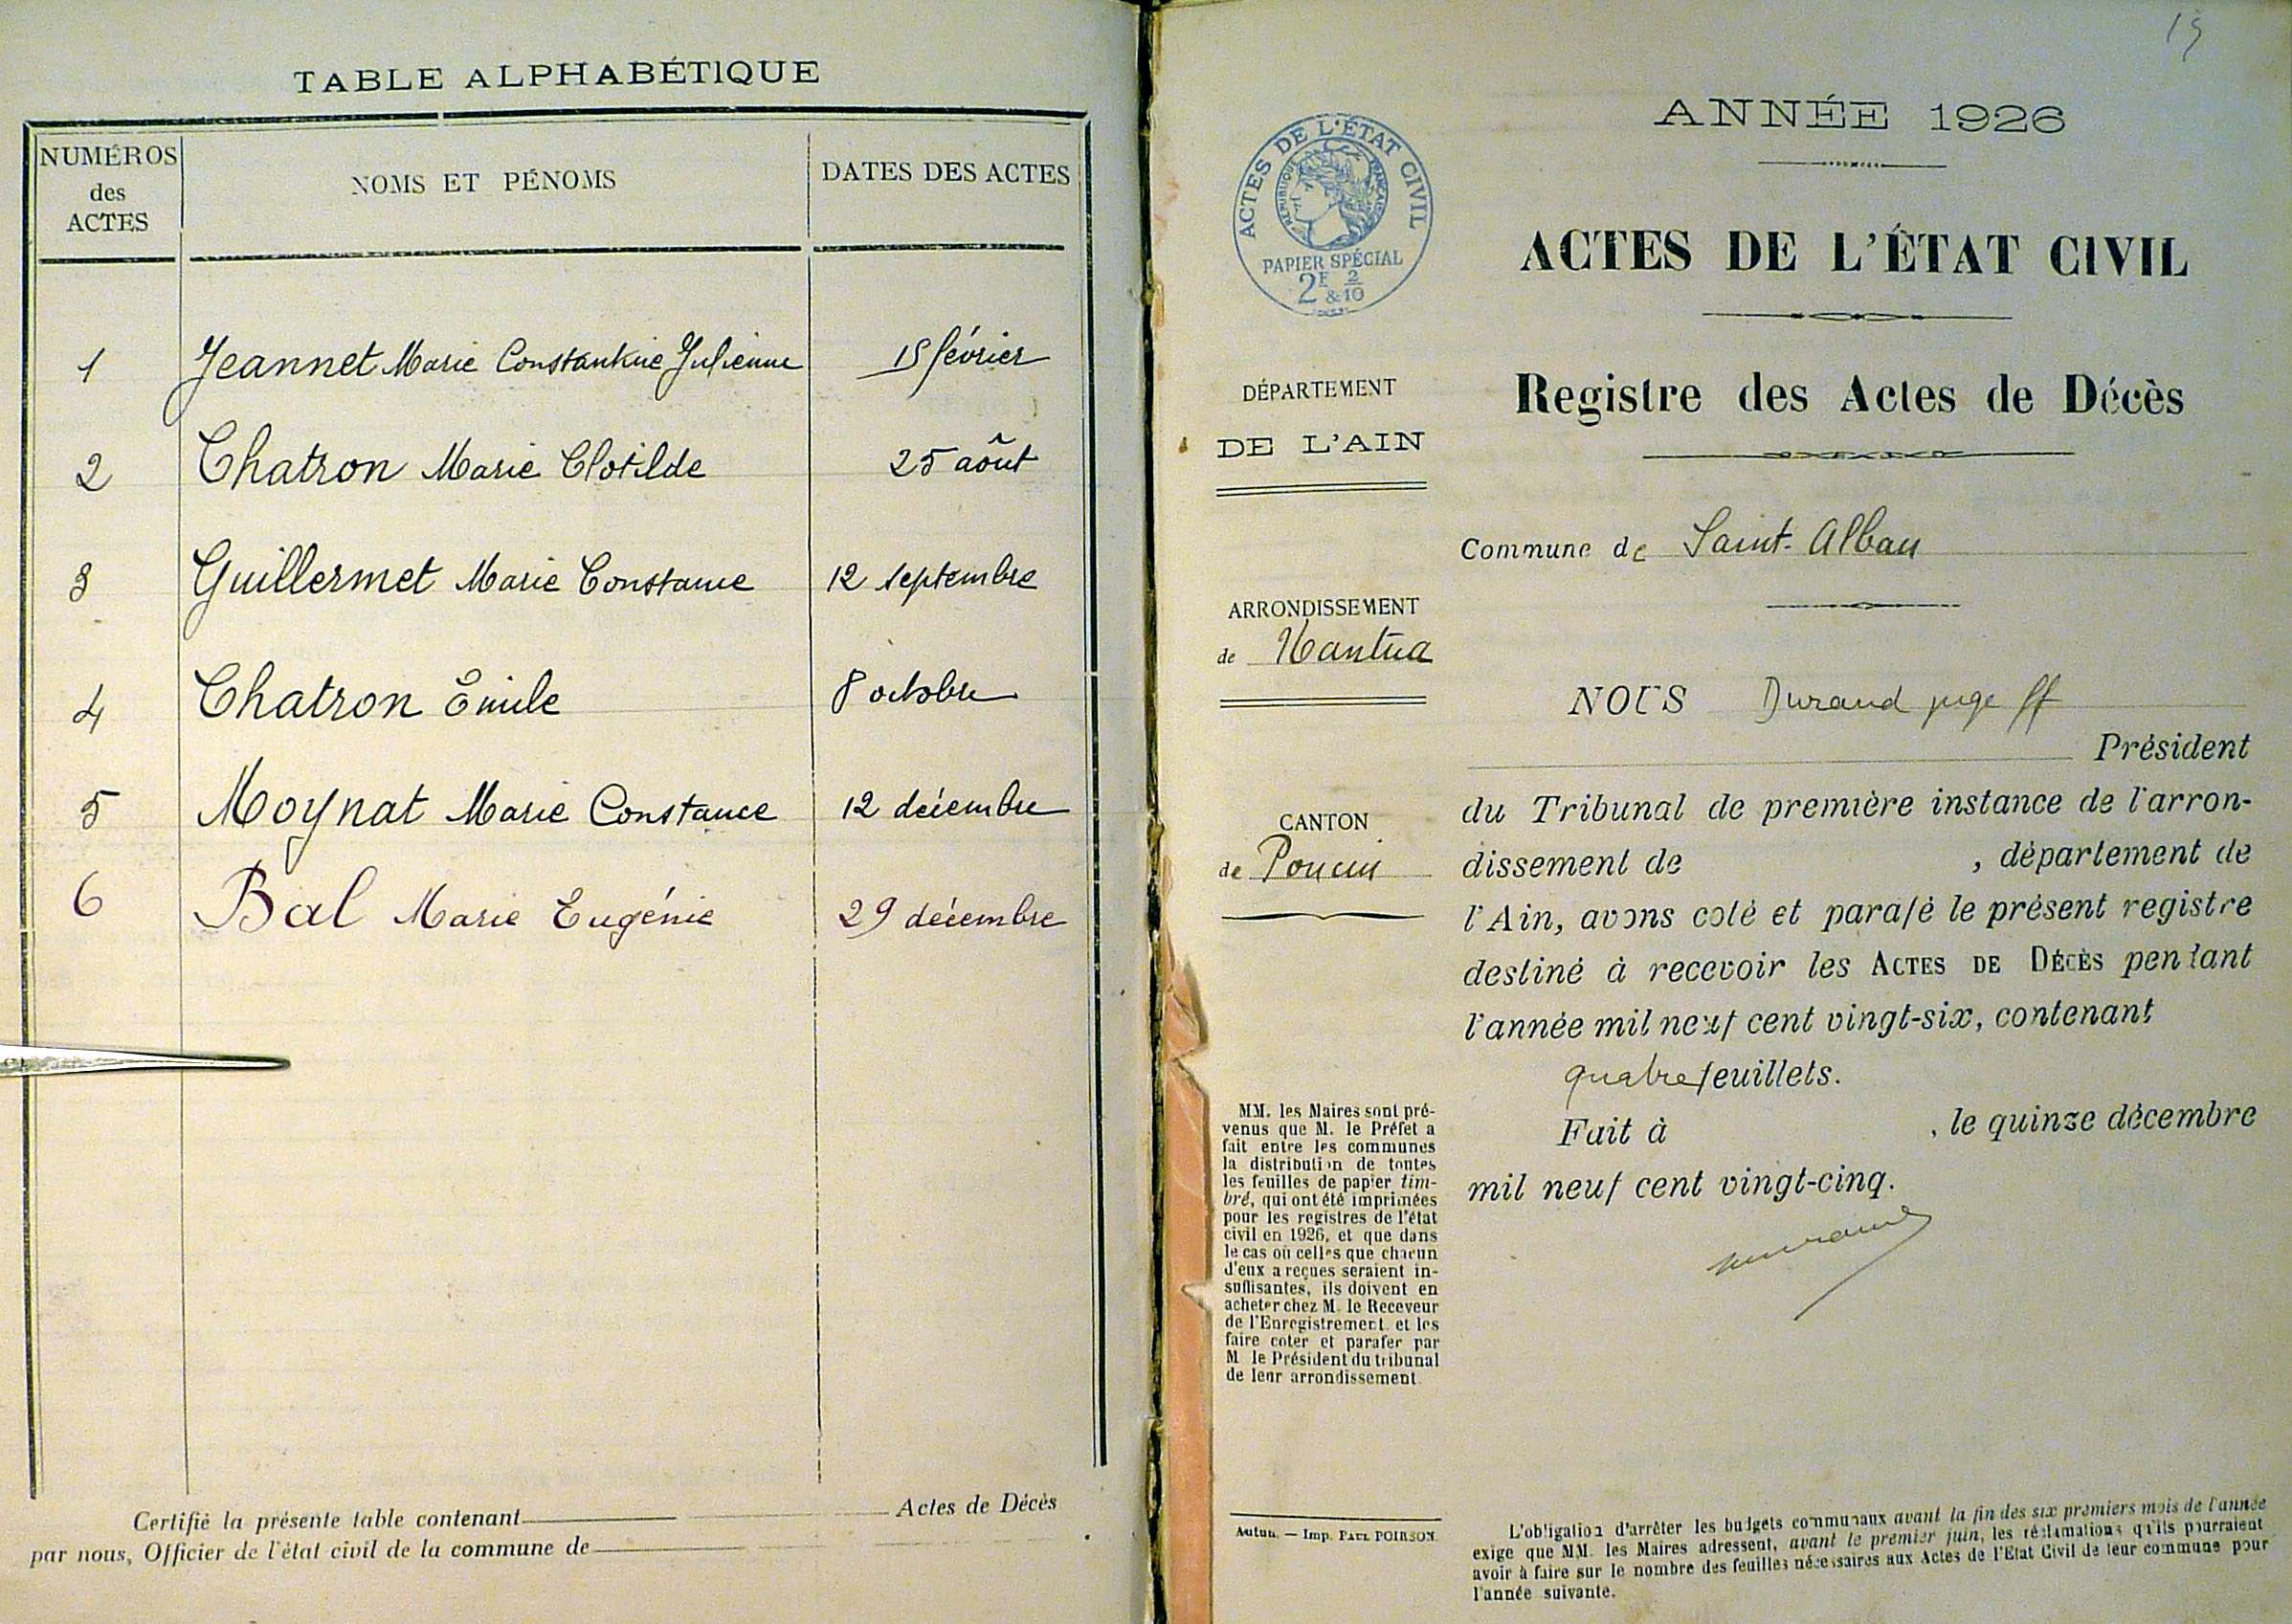 TABLE ALPHABÉTIQUE
NUMÉROS
des
ACTES
NOMS ET PÉNOMS
DATES DES ACTES
1 Jeannet Marie Constantine Julienne 15 février
2 Chatron Marie Clotilde 25 août
3 Guillermet Marie Constance 12 septembre
4 Chatron Emile 8 octobre
5 Moynat Marie Constance 12 décembre
6 Bal Marie Eugénie 29 décembre
Certifié la présente table contenant Actes de Décès
par nous, Officier de l'état civil de la commune de
15
ANNÉE 1926
ACTES DE L'ÉTAT CIVIL
RÉPUBLIQUE FRANÇAISE
PAPIER SPÉCIAL
2F & 2/10
ACTES DE L'ÉTAT CIVIL
Registre des Actes de Décès
DÉPARTEMENT
DE L'AIN
Commune de Saint-Alban
ARRONDISSEMENT
de Nantua
CANTON
de Poncin
NOUS Durand juge ff
Président
du Tribunal de première instance de l'arron-
dissement de , département de
l'Ain, avons coté et parafé le présent registre
destiné à recevoir les ACTES DE DÉCÈS pendant
l'année mil neuf cent vingt-six, contenant
quatre feuillets.
Fait à , le quinze décembre
mil neuf cent vingt-cinq.
MM. les Maires sont pré-
venus que M. le Préfet a
fait entre les communes
la distribution de toutes
les feuilles de papier tim-
bré, qui ont été imprimées
pour les registres de l'état
civil en 1926, et que dans
le cas où celles que chacun
d'eux a reçues seraient in-
suffisantes, ils doivent en
acheter chez M. le Receveur
de l'Enregistrement et les
faire coter et parafer par
M. le Président du tribunal
de leur arrondissement
Autun. — Imp. PAUL POIRSON.
L'obligation d'arrêter les budgets communaux avant la fin des six premiers mois de l'année
exige que MM. les Maires adressent, avant le premier juin, les réclamations qu'ils pourraient
avoir à faire sur le nombre des feuilles nécessaires aux Actes de l'Etat Civil de leur commune pour
l'année suivante.